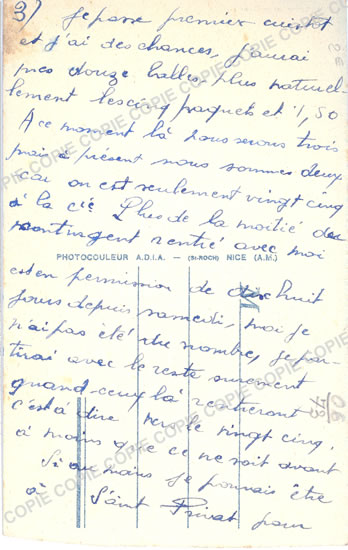 3) je passe premier cuistot
et j'ai des chances, j'aurai
mes douze balles plus naturel-
lement les cinq paquets et 1,50
A ce moment là nous serons trois
mais à présent nous sommes deux
car on est seulement vingt cinq
à la cie Plus de la moitié du
contingent rentré avec moi
PHOTOCOULEUR A.D.I.A. — (St-ROCH) NICE (A.M.)
est en permission de dix huit
jours depuis samedi, moi je
n'ai pas été du nombre, je par-
tirai avec le reste surement
quand ceux là rentreront
c'est à dire vers le vingt cinq,
à moins que ce ne soit avant
Si au moins je pouvais être
à Saint Privat pour
COPIE COPIE COPIE COPIE COPIE COPIE